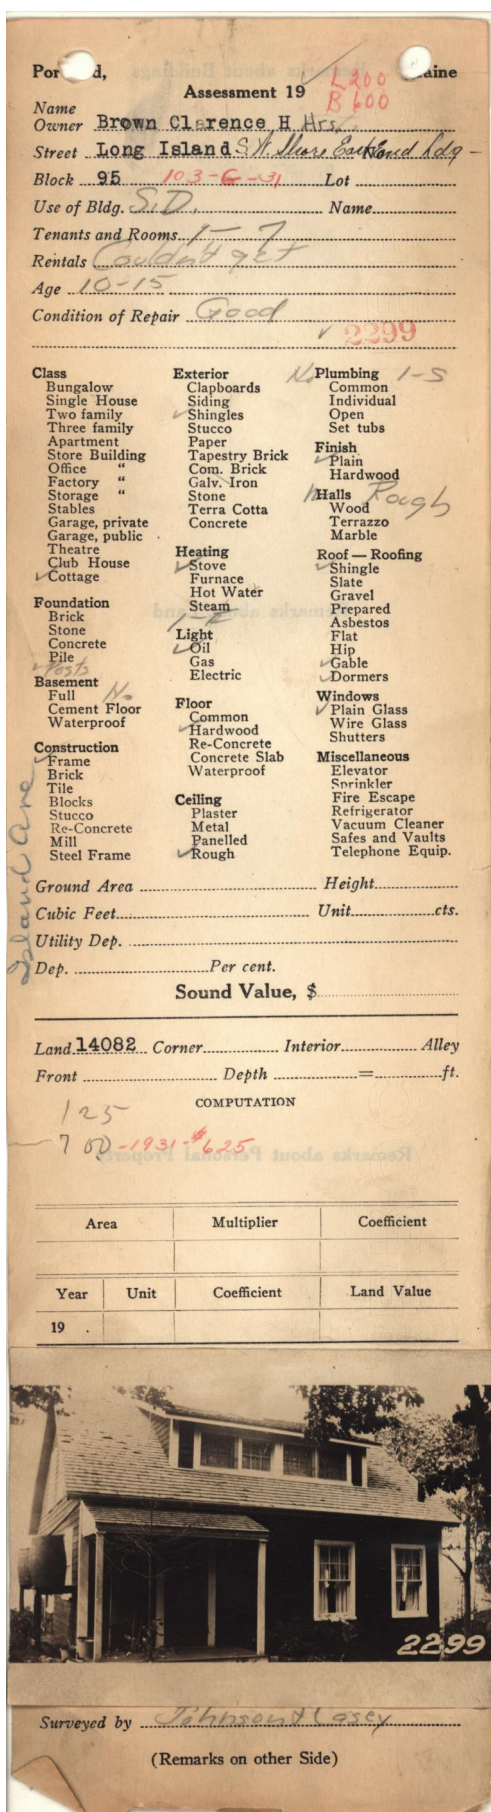 Por    d,    aine
Assessment 19    L 200
B 600
Name
Owner Brown Clarence H Hrs.
Street Long Island S.W. Shore East End Ldg -
Block 95    103-G-31    Lot
Use of Bldg. S.D.    Name
Tenants and Rooms 1 – 7
Rentals Couldn't get
Age 10-15
Condition of Repair Good
2299
Class
Bungalow
Single House
Two family
Three family
Apartment
Store Building
Office "
Factory "
Storage "
Stables
Garage, private
Garage, public
Theatre
Club House
✓Cottage
Foundation
Brick
Stone
Concrete
Pile
✓Posts
Basement
Full No
Cement Floor
Waterproof
Construction
✓Frame
Brick
Tile
Blocks
Stucco
Re-Concrete
Mill
Steel Frame
Exterior
Clapboards
Siding
✓Shingles
Stucco
Paper
Tapestry Brick
Com. Brick
Galv. Iron
Stone
Terra Cotta
Concrete
Heating
✓Stove
Furnace
Hot Water
Steam
1-F
Light
✓Oil
Gas
Electric
Floor
Common
✓Hardwood
Re-Concrete
Concrete Slab
Waterproof
Ceiling
Plaster
Metal
Panelled
✓Rough
No Plumbing 1-S
Common
Individual
Open
Set tubs
Finish
✓Plain
Hardwood
Halls Rough
Wood
Terrazzo
Marble
Roof — Roofing
✓Shingle
Slate
Gravel
Prepared
Asbestos
Flat
Hip
✓Gable
✓Dormers
Windows
✓Plain Glass
Wire Glass
Shutters
Miscellaneous
Elevator
Sprinkler
Fire Escape
Refrigerator
Vacuum Cleaner
Safes and Vaults
Telephone Equip.
Island Ave
Ground Area    Height
Cubic Feet    Unit    cts.
Utility Dep.
Dep.    Per cent.
Sound Value, $
Land 14082 Corner    Interior    Alley
Front    Depth    =    ft.
COMPUTATION
125
700 -1931-$625
Area    Multiplier    Coefficient
Year    Unit    Coefficient    Land Value
19 .
2299
Surveyed by Johnson & Casey
(Remarks on other Side)